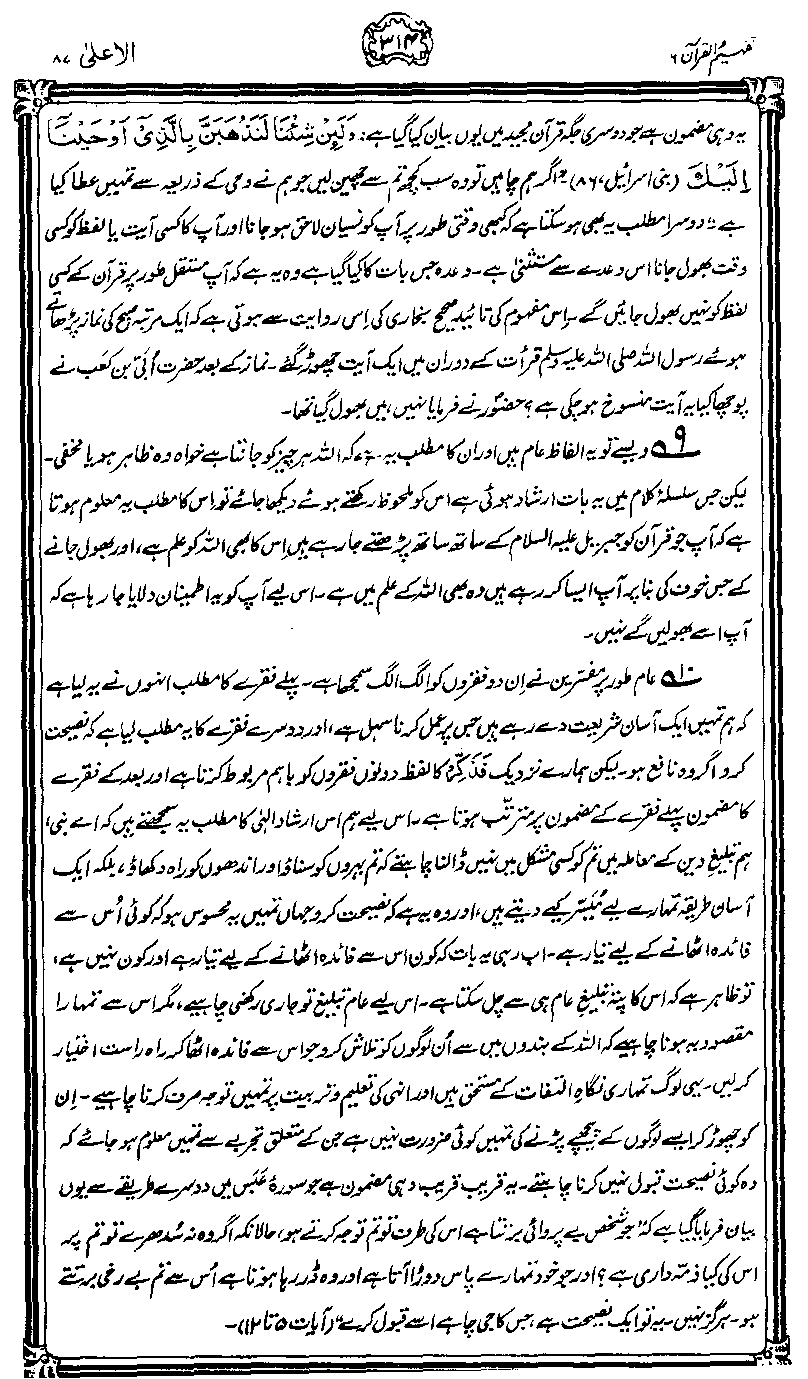 تفہیم القرآن ۶
۳۱۴
الاعلیٰ ۸۷
یہ وہی مضمون ہے جو دوسری جگہ قرآن مجید میں یوں بیان کیا گیا ہے: وَلَئِنْ شِئْنَا لَنَذْهَبَنَّ بِالَّذِیْٓ اَوْحَیْنَآ
اِلَیْكَ (بنی اسرائیل، ۸۶) "اگر ہم چاہیں تو وہ سب کچھ تم سے چھین لیں جو ہم نے وحی کے ذریعہ سے تمہیں عطا کیا
ہے"۔ دوسرا مطلب یہ بھی ہو سکتا ہے کہ کبھی وقتی طور پر آپ کو نسیان لاحق ہو جانا اور آپ کا کسی آیت یا لفظ کو کسی
وقت بھول جانا اس وعدے سے مستثنیٰ ہے۔ وعدہ جس بات کا کیا گیا ہے وہ یہ ہے کہ آپ مستقل طور پر قرآن کے کسی
لفظ کو نہیں بھول جائیں گے۔ اِس مفہوم کی تائید صحیح بخاری کی اِس روایت سے ہوتی ہے کہ ایک مرتبہ صبح کی نماز پڑھاتے
ہوئے رسول اللہ صلی اللہ علیہ وسلم قرأت کے دوران میں ایک آیت چھوڑ گئے۔ نماز کے بعد حضرت اُبَیّ بن کعب نے
پوچھا کیا یہ آیت منسوخ ہو چکی ہے؟ حضورؐ نے فرمایا نہیں، میں بھول گیا تھا۔
۹ ویسے تو یہ الفاظ عام ہیں اور ان کا مطلب یہ ہے کہ اللہ ہر چیز کو جانتا ہے خواہ وہ ظاہر ہو یا مخفی۔
لیکن جس سلسلۂ کلام میں یہ بات ارشاد ہوئی ہے اس کو ملحوظ رکھتے ہوئے دیکھا جائے تو اس کا مطلب یہ معلوم ہوتا
ہے کہ آپ جو قرآن کو جبریل علیہ السلام کے ساتھ ساتھ پڑھتے جا رہے ہیں اِس کا بھی اللہ کو علم ہے، اور بھول جانے
کے جس خوف کی بنا پر آپ ایسا کر رہے ہیں وہ بھی اللہ کے علم میں ہے۔ اس لیے آپ کو یہ اطمینان دلایا جا رہا ہے کہ
آپ اسے بھولیں گے نہیں۔
۱۰ عام طور پر مفسّرین نے اِن دو فقروں کو الگ الگ سمجھا ہے۔ پہلے فقرے کا مطلب انہوں نے یہ لیا ہے
کہ ہم تمہیں ایک آسان شریعت دے رہے ہیں جس پر عمل کرنا سہل ہے، اور دوسرے فقرے کا یہ مطلب لیا ہے کہ نصیحت
کرو اگر وہ نافع ہو۔ لیکن ہمارے نزدیک فَذَكِّرْ کا لفظ دونوں فقروں کو باہم مربوط کرتا ہے اور بعد کے فقرے
کا مضمون پہلے فقرے کے مضمون پر مترتّب ہوتا ہے۔ اس لیے ہم اس ارشادِ الٰہی کا مطلب یہ سمجھتے ہیں کہ اے نبی،
ہم تبلیغِ دین کے معاملہ میں تم کو کسی مشکل میں نہیں ڈالنا چاہتے کہ تم بہروں کو سناؤ اور اندھوں کو راہ دکھاؤ، بلکہ ایک
آسان طریقہ تمہارے لیے مُیَسّر کیے دیتے ہیں، اور وہ یہ ہے کہ نصیحت کرو جہاں تمہیں یہ محسوس ہو کہ کوئی اُس سے
فائدہ اٹھانے کے لیے تیار ہے۔ اب رہی یہ بات کہ کون اس سے فائدہ اٹھانے کے لیے تیار ہے اور کون نہیں ہے،
تو ظاہر ہے کہ اس کا پتہ تبلیغِ عام ہی سے چل سکتا ہے۔ اس لیے عام تبلیغ تو جاری رکھنی چاہیے، مگر اس سے تمہارا
مقصود یہ ہونا چاہیے کہ اللہ کے بندوں میں سے اُن لوگوں کو تلاش کرو جو اس سے فائدہ اٹھا کر راہِ راست اختیار
کر لیں۔ یہی لوگ تمہاری نگاہِ التفات کے مستحق ہیں اور انہی کی تعلیم و تربیت پر تمہیں توجہ صرف کرنا چاہیے۔ اِن
کو چھوڑ کر ایسے لوگوں کے پیچھے پڑنے کی تمہیں کوئی ضرورت نہیں ہے جن کے متعلق تجربے سے تمہیں معلوم ہو جائے کہ
وہ کوئی نصیحت قبول نہیں کرنا چاہتے۔ یہ قریب قریب وہی مضمون ہے جو سورۂ عَبَس میں دوسرے طریقے سے یوں
بیان فرمایا گیا ہے کہ "جو شخص بے پروائی برتتا ہے اس کی طرف تو تم توجہ کرتے ہو، حالانکہ اگر وہ نہ سُدھرے تو تم پر
اس کی کیا ذمّہ داری ہے؟ اور جو خود تمہارے پاس دوڑا آتا ہے اور وہ ڈر رہا ہوتا ہے اُس سے تم بے رخی برتتے
ہو۔ ہرگز نہیں۔ یہ تو ایک نصیحت ہے، جس کا جی چاہے اسے قبول کرے" (آیات ۵ تا ۱۲)۔